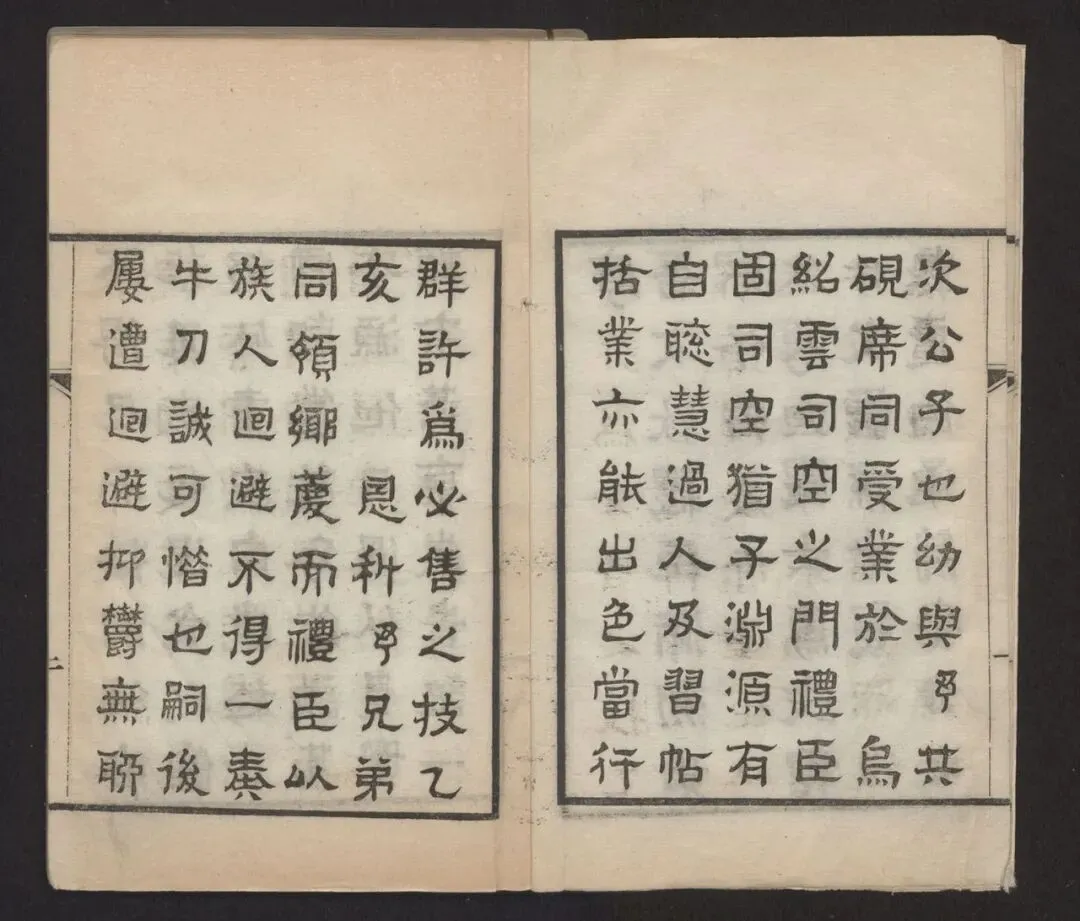 次公子也幼與予共
硯席同受業於　烏
紹雲司空之門禮臣
固司空猶子淵源有
自聰慧過人及習帖
括業亦能出色當行
群許爲必售之技乙
亥　恩科予兄弟
同領鄉薦而禮臣以
族人迴避不得一奏
牛刀誠可惜也嗣後
屢遭迴避抑鬱無聊